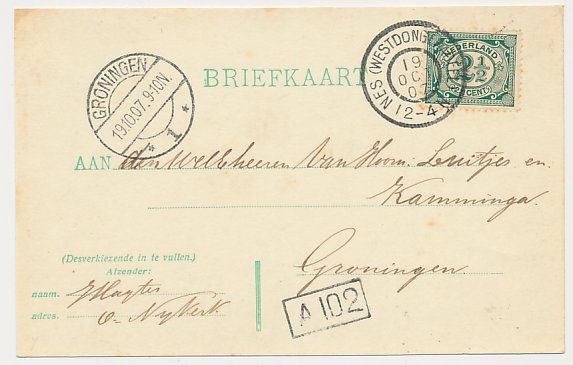 GRONINGEN
19.10.07. 9-10N.
1
BRIEFKAART
NES (WESTDONG
19
OC
12-4
NEDERLAND
2½
CENT
AAN den WelEd. heeren Van Hoorn Luitjes en
Kamminga
Groningen.
(Desverkiezende in te vullen.)
Afzender:
naam.
adres. O- Nykerk
A 102